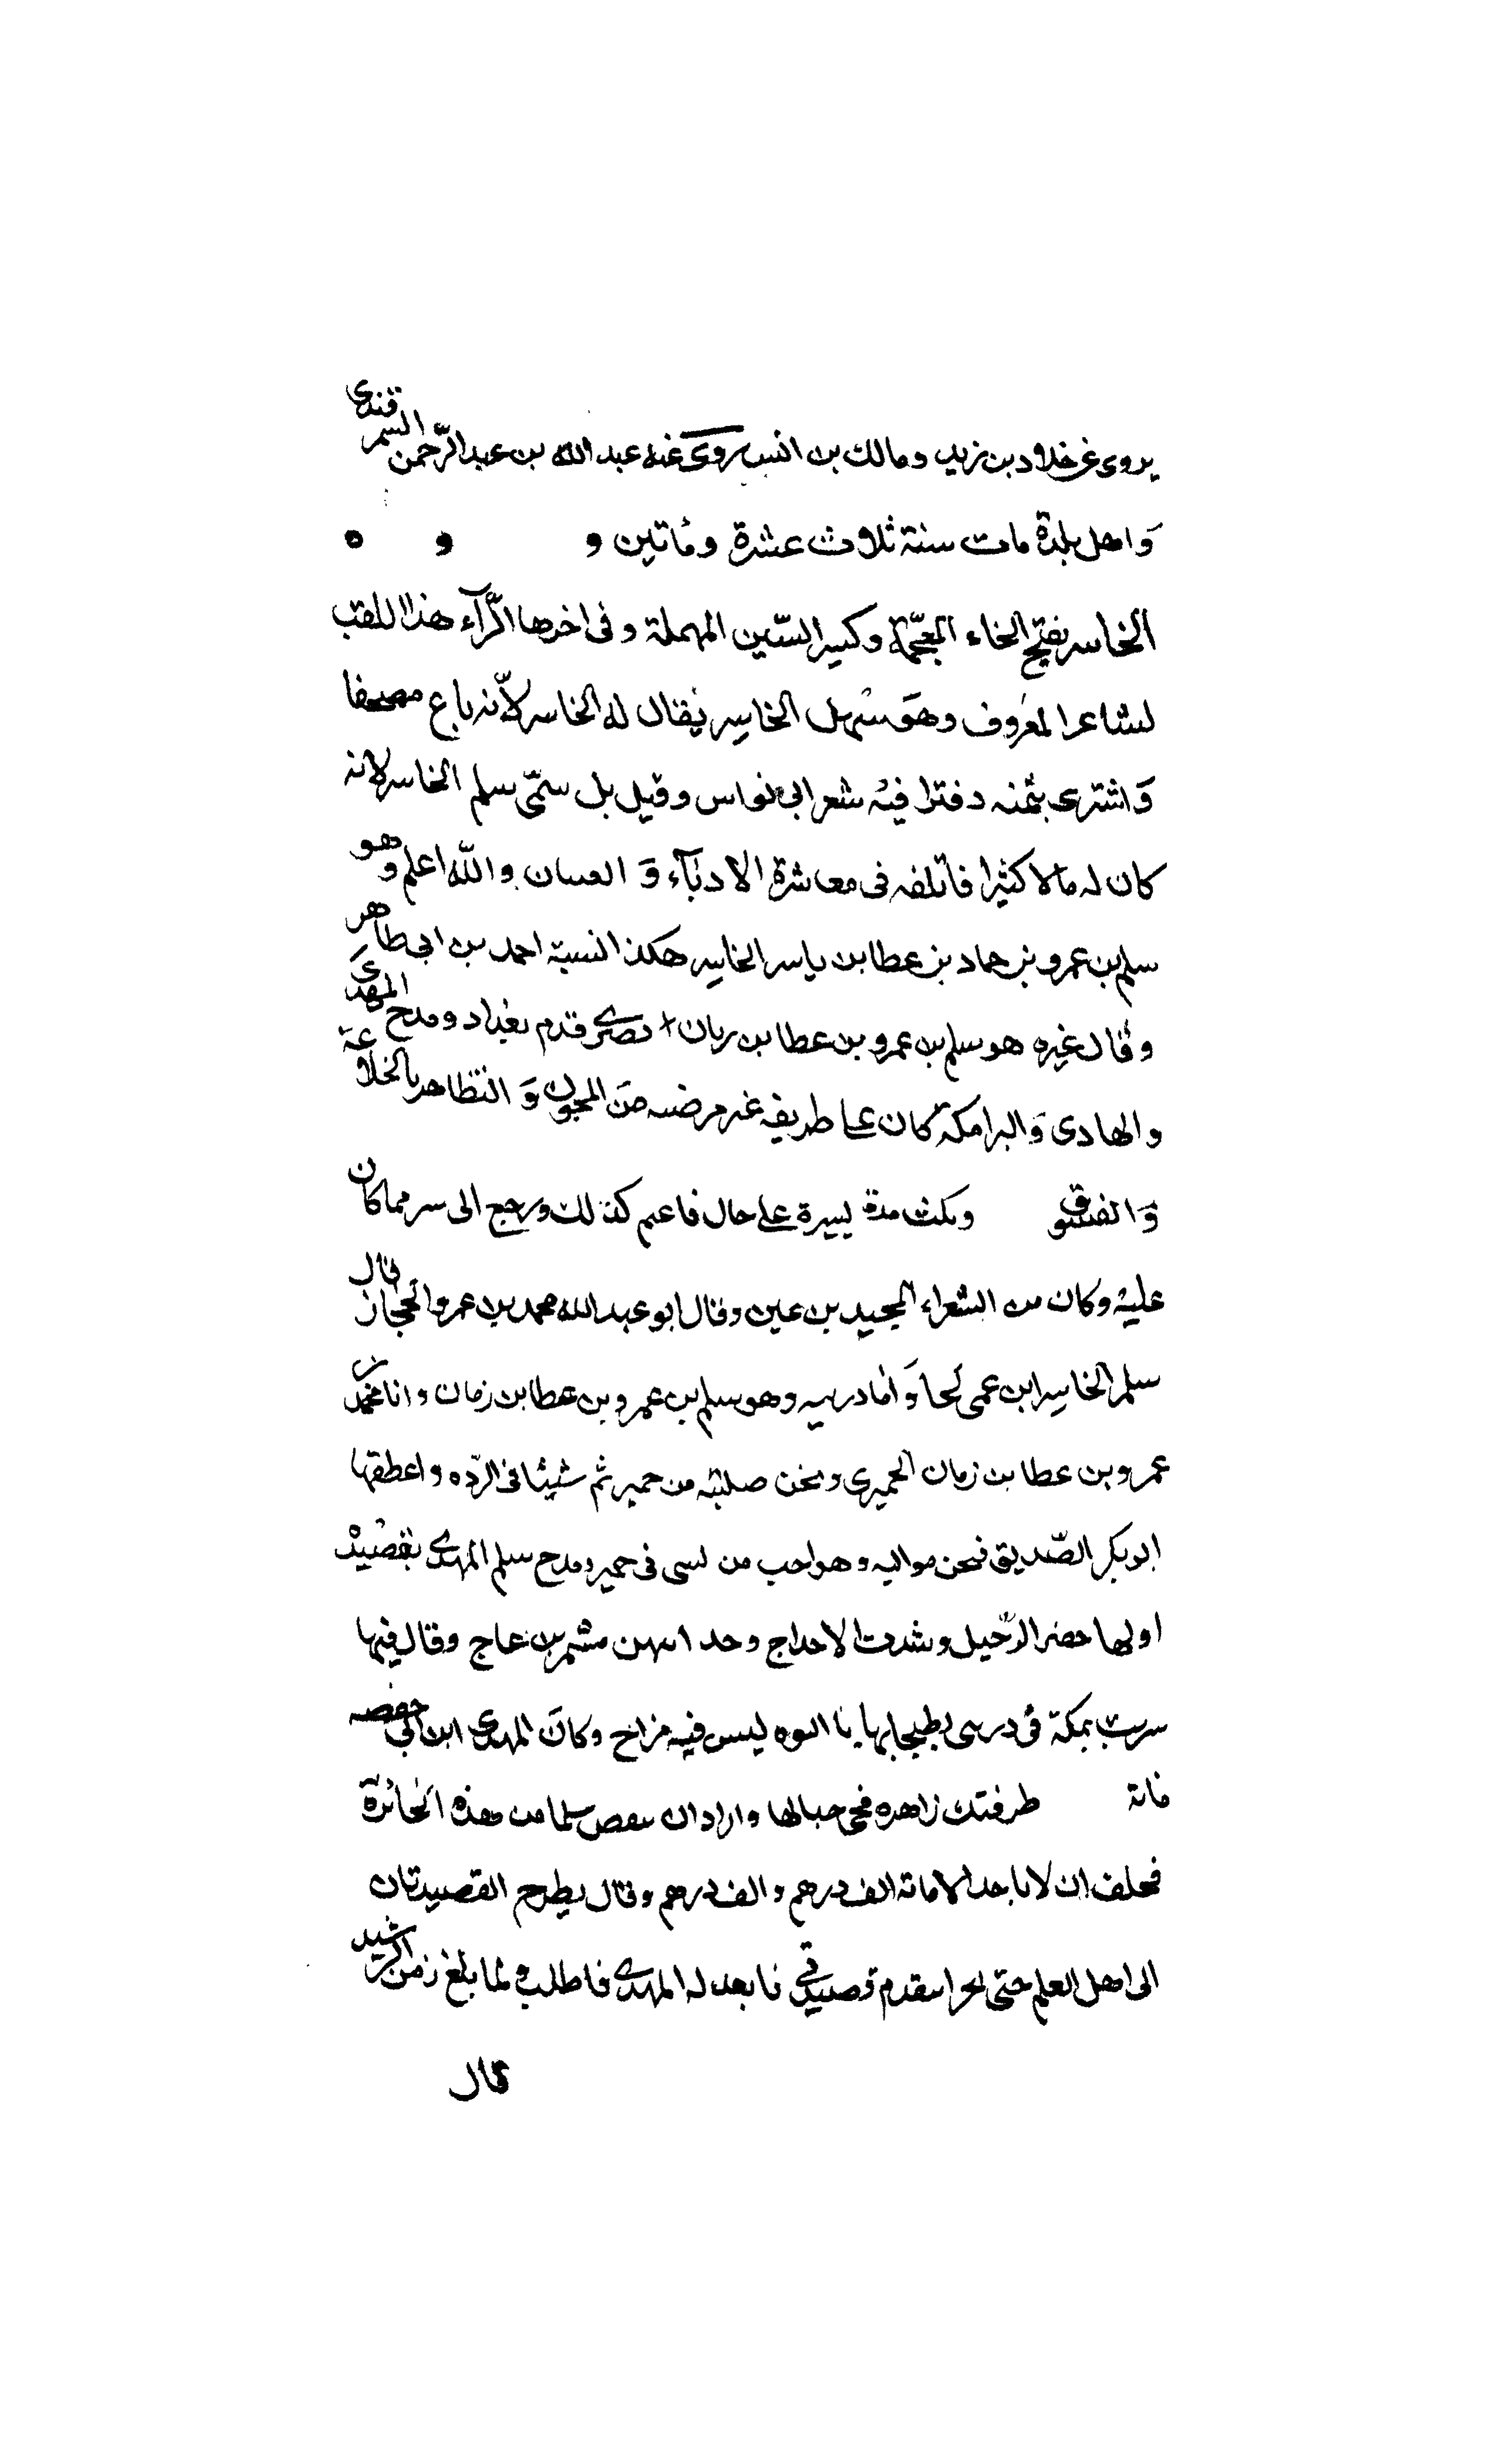 يروى عن خلاد بن زيد ومالك بن انس يروى عنه عبد الله بن عبد الرّحمن السمرقندى
وَاهل بلدة مات سنة ثلاث عشرة ومأتين و و ه
الخاسر بفتح الخاء المعجّمة وكسر السّين المهملة وفى اخرها الرّآء هذا اللقب
لشاعر المعروف وهوَ سهل الخاسِر يقال له الخاسر لاّنه باع مصحفا
وَاشترى بثمنه دفترا فيه شعر ابى نواس وقيل بل سمّى سلم الخاسر لانه
كان له مالا كثيرا فاتلفه فى معاشرة الادبآء وَ العسان والله اعلم وهو
سلم بن عمرو بن حماد بن عطا بن ياسر الخاسِر هكذا النسبة احمد بن ابى طاهر
وقال غيره هو سلم بن عمرو بن عطا بن ربان بصرى قدم بغداد ومدح المهدى
والهادى وَالبرامكة كان على طريقه غير مرضيه منَ المجون وَ التظاهر بالخلاعة
وَالفسوق ومكث مدة يسيرة على حال فاعم كذلك ورجع الى سر مما كان
عليه وكان من الشعراء المجيد بن عين وقال ابو عبد الله محمد بن عمرو الحجاز قال
سلم الخاسِر ابن عمى لحا وَانا وهو سلم بن عمرو بن عطا بن زمان وانا محمد بن
عمرو بن عطا بن زمان الحميرى ونحن صلبته من حمير ثم شيئا فى الرّده واعطقها
ابو بكر الصّديق فنحن مواليه وهو احب من لسى فى حمير ومدح سلم المهدى بقصيد
اولها حضر الرّحيل وشدت الاحداج وحدا بهن مشمر بن عاج وقال فيها
سربت بمكة فى بطيحابها يا ليس فيه مزاح وكانَ المهدى ابن ابى حفصه
مانة طرفتك زاهره فحى حبالها واراد ان سعص سلما من هذه الجائزة
فحلف ان لا ياحد الا مانه الف درهم والف درهم وقال يطرح القصيدتان
الى اهل العلم حتى بقدم قصيدتى له المهدى فاطلب ولما بلغ زمن الرّشيد
قال